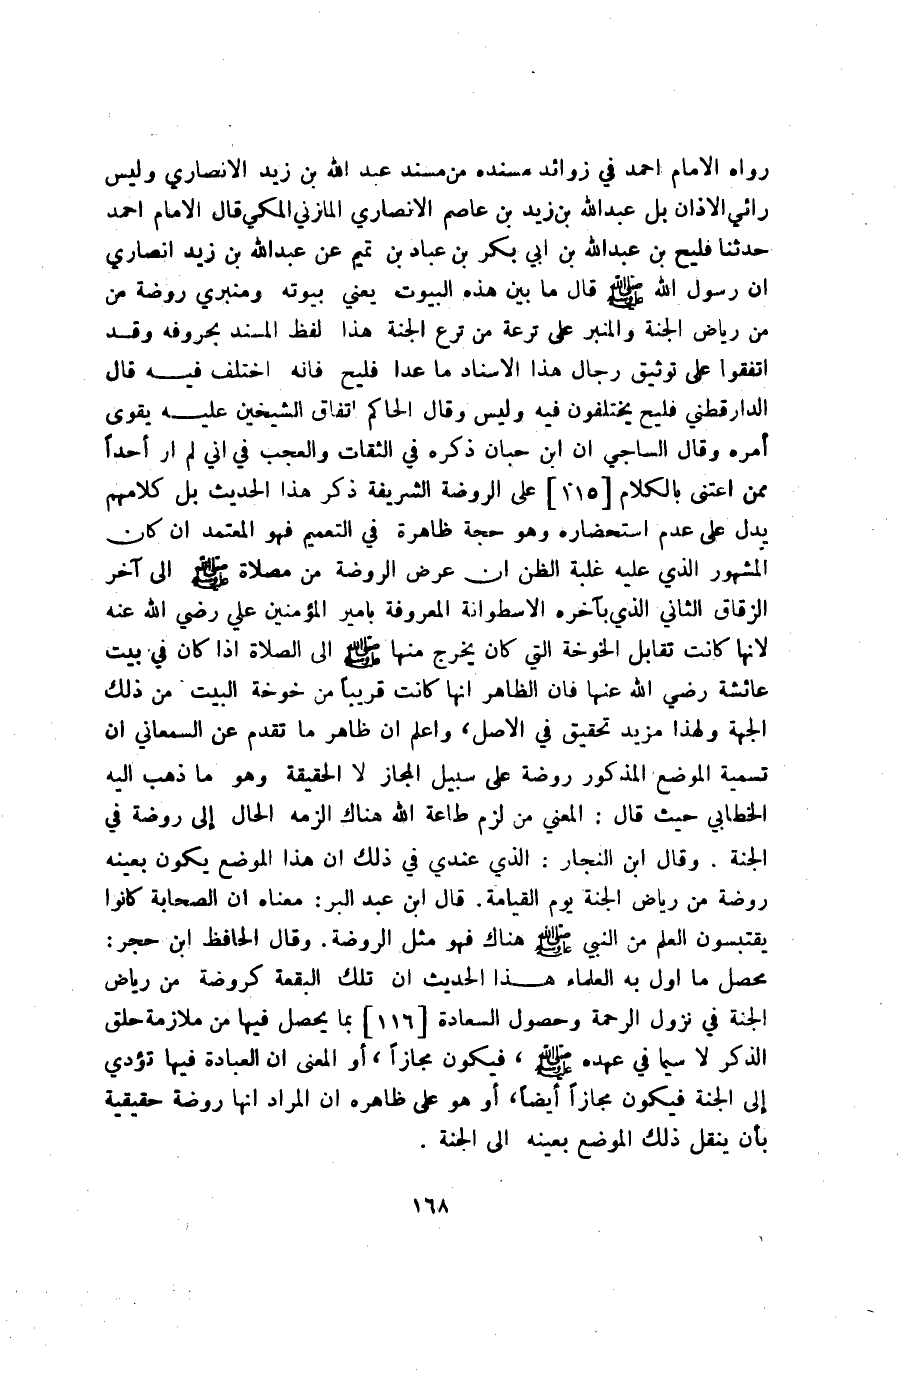 رواه الامام احمد في زوائد مسنده من مسند عبد الله بن زيد الانصاري وليس
رائي الاذان بل عبدالله بن زيد بن عاصم الانصاري المازني المكي قال الامام احمد
حدثنا فليح بن عبدالله بن ابي بكر بن عباد بن تميم عن عبدالله بن زيد انصاري
ان رسول الله ﷺ قال ما بين هذه البيوت يعني بيوته ومنبري روضة من
من رياض الجنة والمنبر على ترعة من ترع الجنة هذا لفظ المسند بحروفه وقد
اتفقوا على توثيق رجال هذا الاسناد ما عدا فليح فانه اختلف فيه قال
الدارقطني فليح يختلفون فيه وليس وقال الحاكم اتفاق الشيخين عليه يقوى
أمره وقال الساجي ان ابن حبان ذكره في الثقات والعجب في اني لم ار أحداً
ممن اعتنى بالكلام [١١٥] على الروضة الشريفة ذكر هذا الحديث بل كلامهم
يدل على عدم استحضاره وهو حجة ظاهرة في التعميم فهو المعتمد ان كان
المشهور الذي عليه غلبة الظن ان عرض الروضة من مصلاة ﷺ الى آخر
الزقاق الثاني الذي بآخره الاسطوانة المعروفة بامير المؤمنين علي رضي الله عنه
لانها كانت تقابل الخوخة التي كان يخرج منها ﷺ الى الصلاة اذا كان في بيت
عائشة رضي الله عنها فان الظاهر انها كانت قريباً من خوخة البيت من ذلك
الجهة ولهذا مزيد تحقيق في الاصل، واعلم ان ظاهر ما تقدم عن السمعاني ان
تسمية الموضع المذكور روضة على سبيل المجاز لا الحقيقة وهو ما ذهب اليه
الخطابي حيث قال : المعنى من لزم طاعة الله هناك الزمه الحال إلى روضة في
الجنة . وقال ابن النجار : الذي عندي في ذلك ان هذا الموضع يكون بعينه
روضة من رياض الجنة يوم القيامة. قال ابن عبد البر: معناه ان الصحابة كانوا
يقتبسون العلم من النبي ﷺ هناك فهو مثل الروضة. وقال الحافظ ابن حجر:
محصل ما اول به العلماء هذا الحديث ان تلك البقعة كروضة من رياض
الجنة في نزول الرحمة وحصول السعادة [١١٦] بما يحصل فيها من ملازمة حلق
الذكر لا سيما في عهده ﷺ ، فيكون مجازاً ، أو المعنى ان العبادة فيها تؤدي
إلى الجنة فيكون مجازاً أيضاً، أو هو على ظاهره ان المراد انها روضة حقيقية
بأن ينقل ذلك الموضع بعينه الى الجنة .
١٦٨